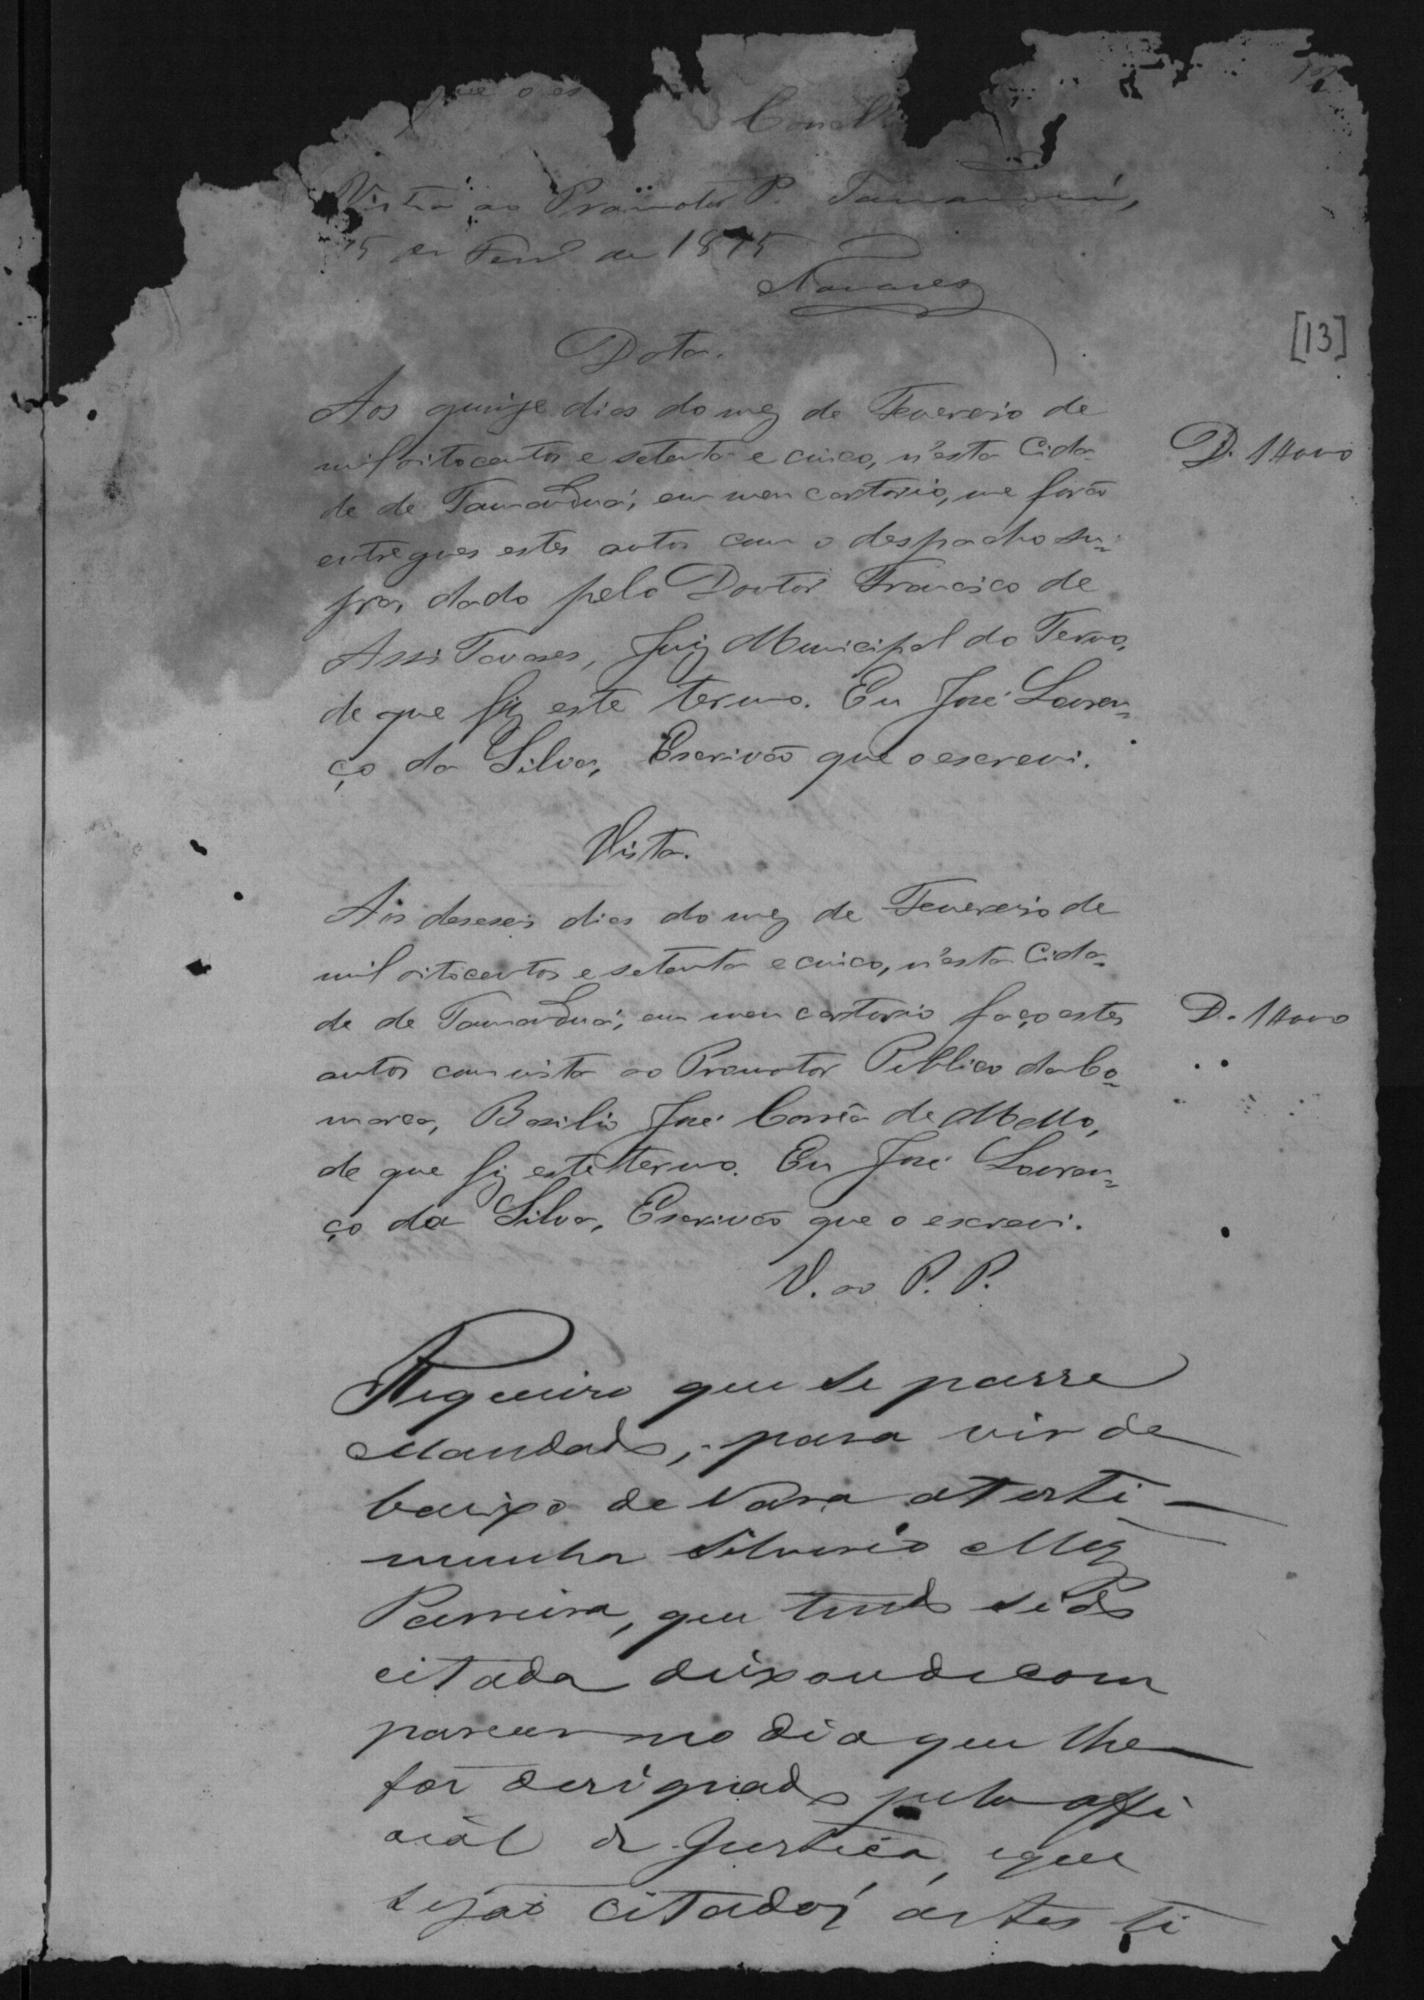 que o es
Concl
Vista ao Promotor P. Tamanduá,
15 de Fever.º de 1875
Tavares
[13]
Data.
Aos quinze dias do mez de Fevereiro de
mil oitocentos e setenta e cinco, n'esta Cida-
D. 1$000
de de Tamanduá, em meu cartorio, me forão
entregues estes autos com o despacho su-
pra, dado pelo Doutor Francisco de
Assis Tavares, Juiz Municipal do Termo,
de que fiz este termo. Eu José Louren-
ço da Silva, Escrivão que o escrevi.
Vista.
Aos deseseis dias do mez de Fevereiro de
mil oitocentos e setenta e cinco, n'esta Cida-
de de Tamanduá, em meu cartorio faço estes
D. 1$000
autos com vista ao Promotor Publico da Co-
marca, Basilio José Corrêa de Mello,
de que fiz este termo. Eu José Louren-
ço da Silva, Escrivão que o escrevi.
V. ao P. P.
Requeiro que se passe
Mandado, para vir de
baixo de Vara a testi-
munha Silverio Mez
Parreira, que tendo sido
citada deixou de com
parecer no dia que lhe
foi designado pelo offi
cial de Justiça, e que
sejão citados as tes ti